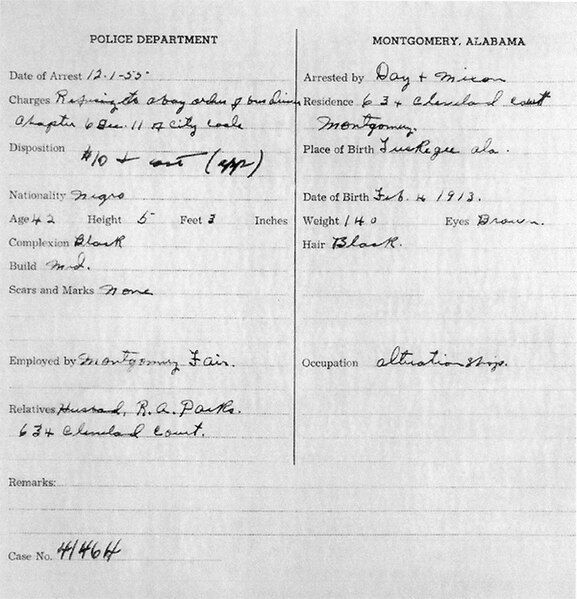 POLICE DEPARTMENT
MONTGOMERY, ALABAMA
Date of Arrest 12-1-55
Arrested by Day + Mixon
Charges Refusing to obay orders of bus driver
Residence 634 Cleveland Courtt
Chapter 6 Sec. 11 of City Code
Montgomery.
Disposition $10 + cost (app)
Place of Birth Tuskegee ala.
Nationality Negro
Date of Birth Feb. 4 1913.
Age 42 Height 5 Feet 3 Inches
Weight 140 Eyes Brown.
Complexion Black
Hair Black.
Build Med.
Scars and Marks None
Employed by Montgomery Fair.
Occupation alteration shop.
Relatives Husband, R.A. Parks.
634 Cleveland Court.
Remarks:
Case No. 41464